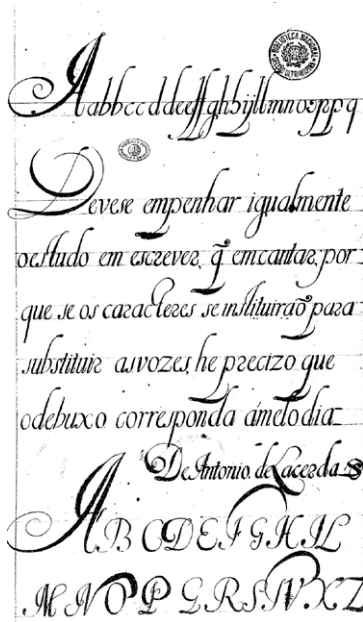 Aabbccddeeffghhijllmnoорррq
Devese empenhar igualmente
oestudo em escrever, q̃ emcantar, por
que se os caracteres se instituiraõ para
substituir asvozes, he precizo que
odebuxo corresponda ámelodia
De Antonio de Lacerda
A B C D E F G H I L
M N O P Q R S T V X Z